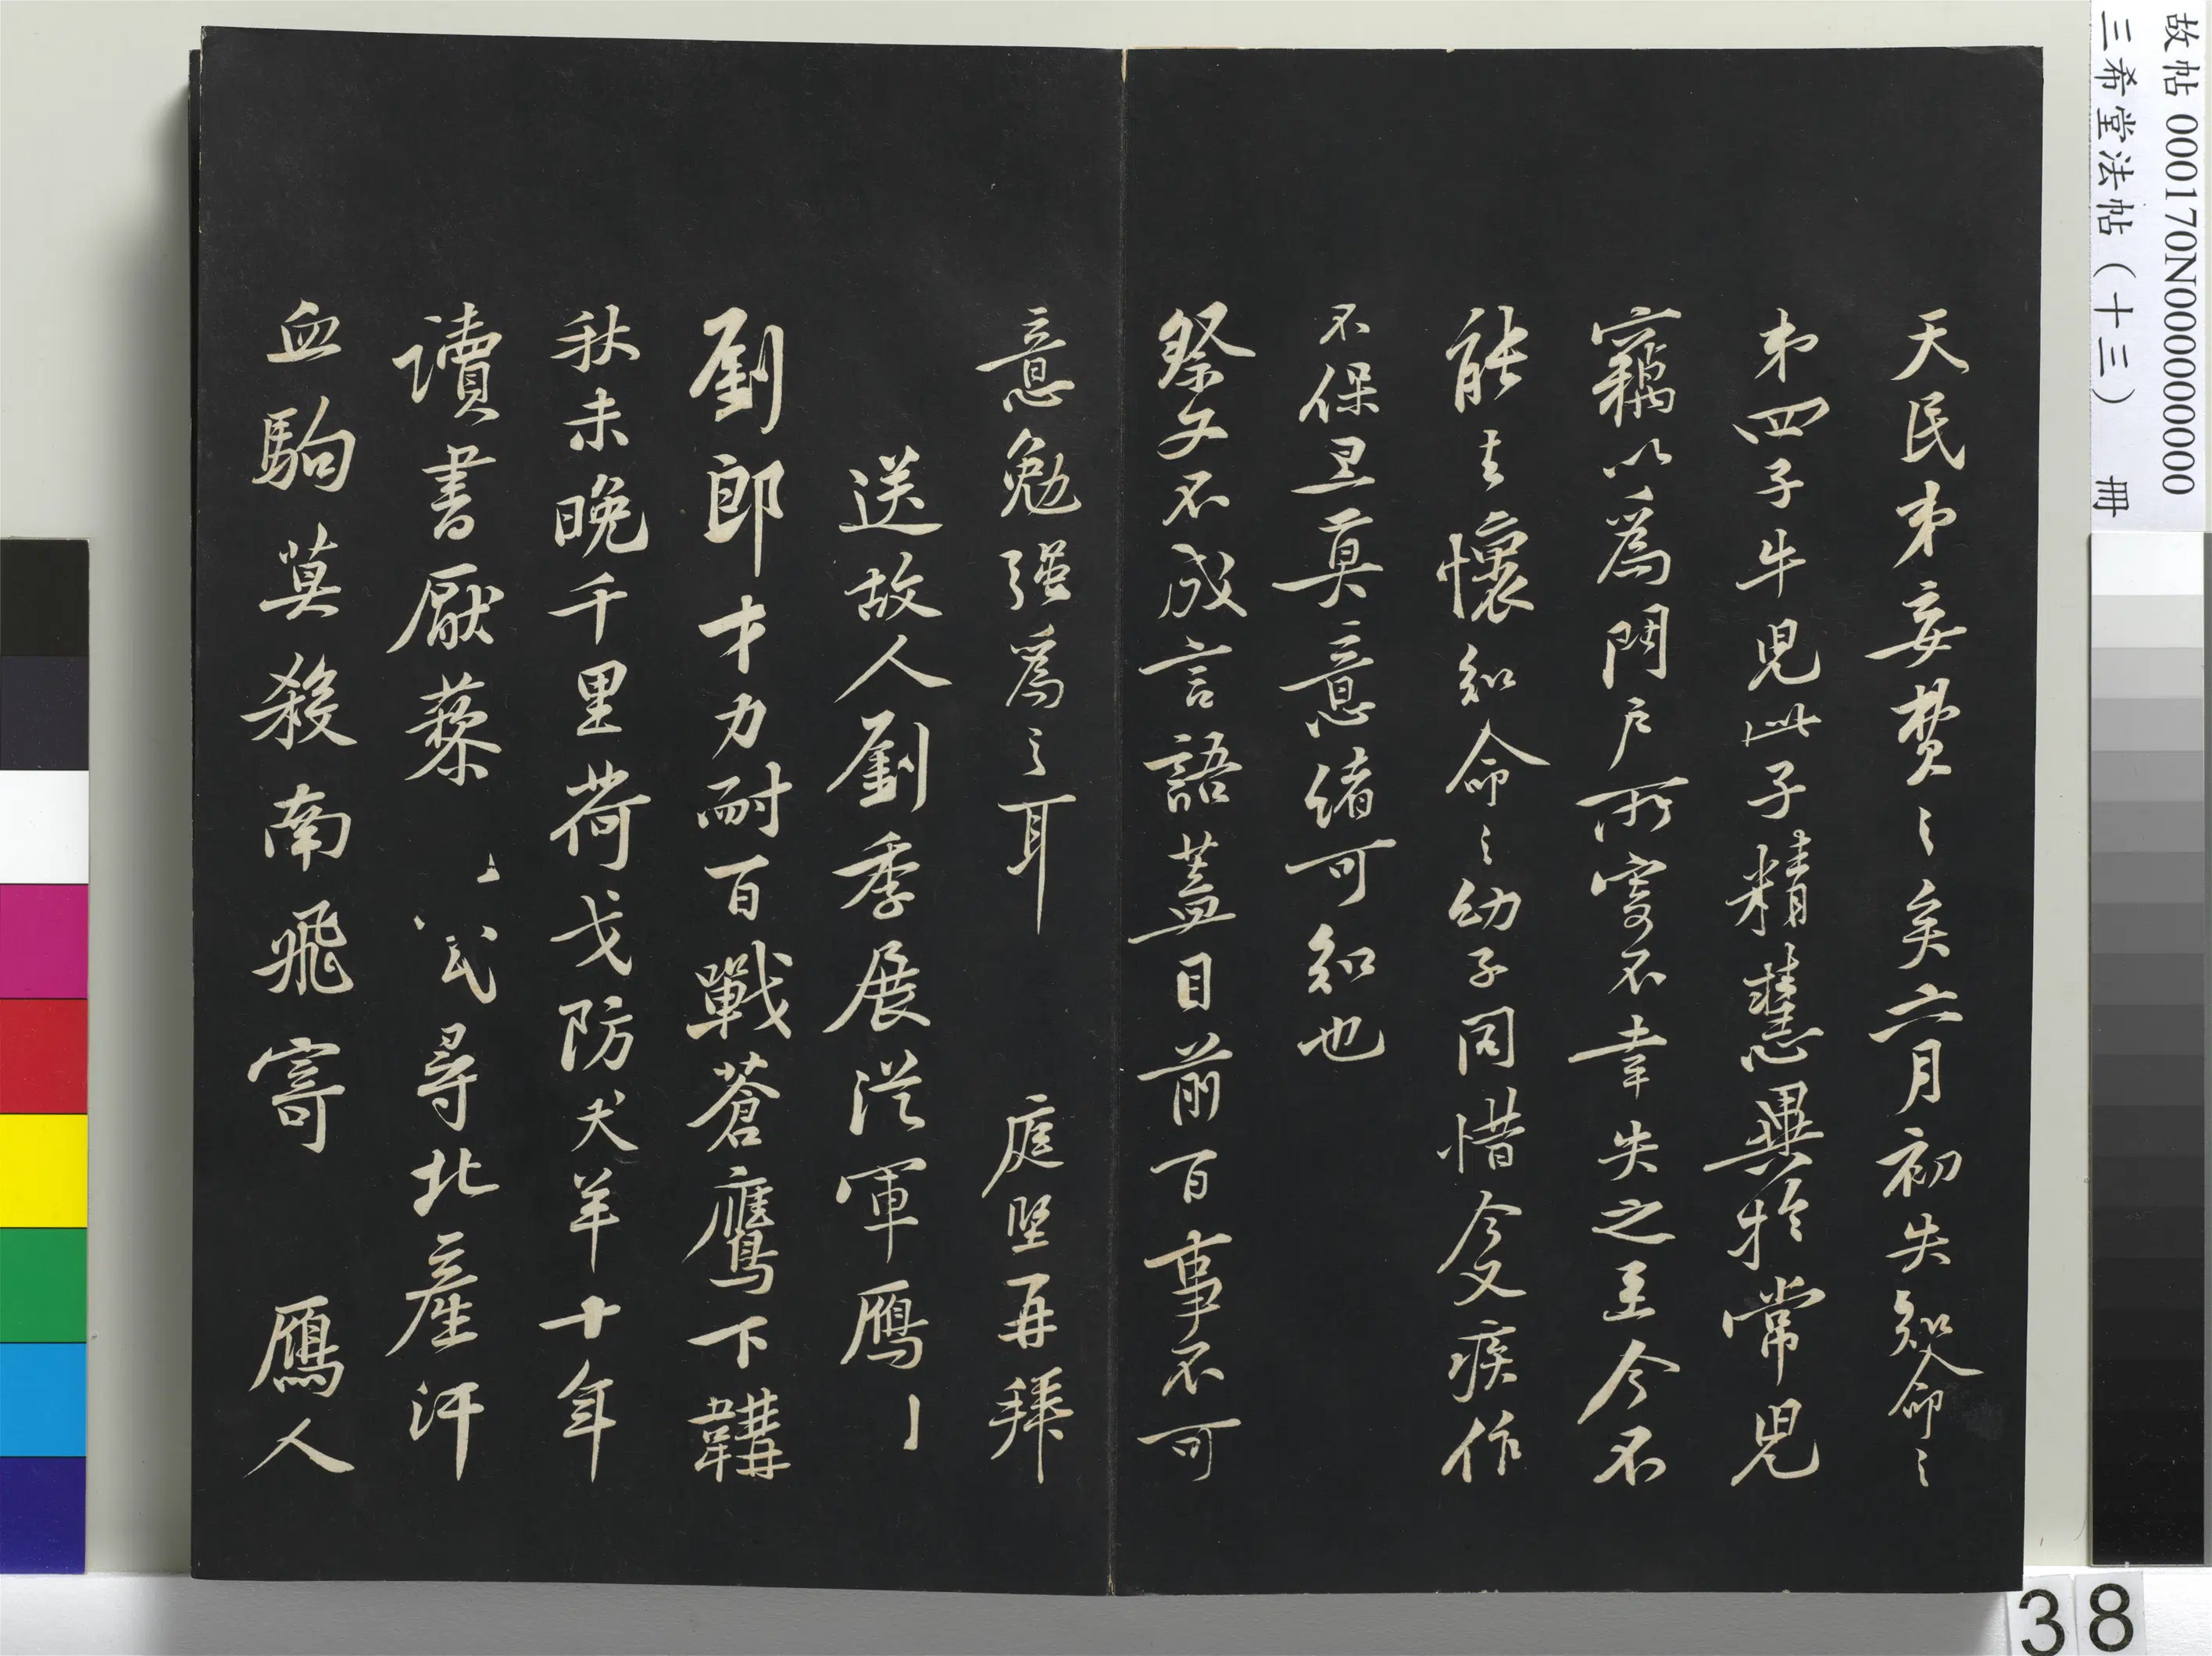 天民弟妾費〻矣六月初失知命〻
弟四子牛児此子精慧異於常児
竊以爲門戶所寄不幸失之至今不
能去懷知命〻幼子同惜今又疾作
不保卫真意緒可知也
祭文不成言語蓋目前百事不可
意勉强爲之耳 庭堅再拜
送故人劉季展從軍鴈
劉郎才力耐百戰蒼鷹下韝
秋未晚千里荷戈防犬羊十年
讀書厭藜 尋北産汗
血駒莫殺南飛寄 鴈人
故帖 000170N000000000
三希堂法帖（十三） 冊
38